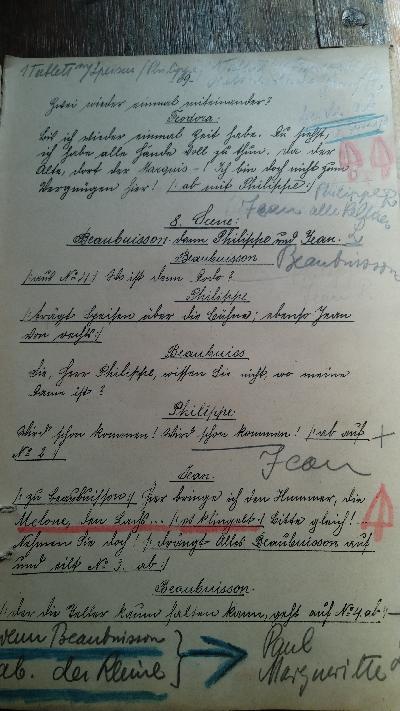 1 Tablett m/ Speisen / Philippe
39.
zwei wieder einmal miteinander?
Teodora:
Bis ich wieder einmal Zeit habe. Du siehst,
ich habe alle Hände voll zu thun. Da der
Alte, dort der Marquis -! Ich bin doch nicht zum
Vergnügen hier! /: ab mit Philippe :/
Philippe
Jean
8. Scene:
Beaubuisson, dann Philippe und Jean.
Beaubuisson
Beaubuisson
/: aus No 4 :/ Wo ist denn Dodo?
Philippe
/: trägt Speisen über die Bühne; ebenso Jean
von rechts :/
Beaubuiss
Sie, Herr Philippe, wissen Sie nicht, wo meine
Dame ist?
Philippe
Wird schon kommen! Wird schon kommen! /: ab auf
No 2 :/
Jean
Jean.
/: zu Beaubuisson :/ Hier bringe ich den Hummer, die
Melone, den Lachs... /: es klingelt :/ Bitte gleich!
Nehmen Sie doch! /: drängt Alles Beaubuisson auf
und eilt No 3. ab :/
Beaubuisson.
/: der die Teller kaum halten kann, geht auf No 4. ab :/
wenn Beaubuisson
ab. der Kleine
Paul
Margueritte